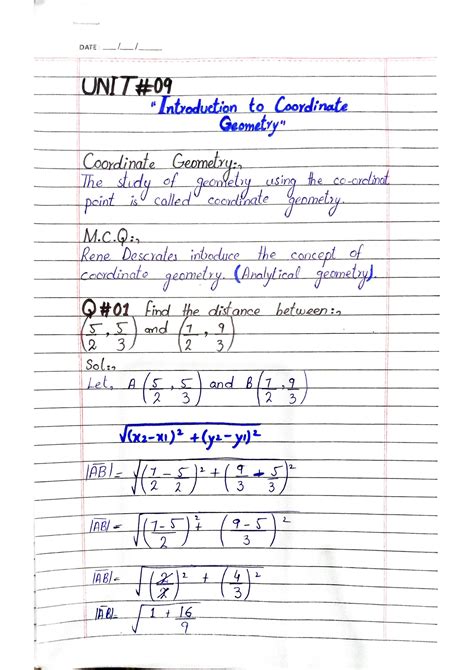 DATE: __/__/____
UNIT#09
"Introduction to Coordinate
Geometry"
Coordinate Geometry:,
The study of geometry using the co-ordinat
point is called coordinate geometry.
M.C.Q:,
Rene Descrates introduce the concept of
coordinate geometry. (Analytical geometry).
Q#01 Find the distance between:,
(5/2, 5/3) and (7/2, 9/3)
Sol:,
Let, A (5/2, 5/3) and B (7/2, 9/3)
√(x2-x1)² + (y2-y1)²
|AB| = √(7/2 - 5/2)² + (9/3 - 5/3)²
|AB| = √(7-5/2)² + (9-5/3)²
|AB| = √(2/2)² + (4/3)²
|AB| = √1 + 16/9